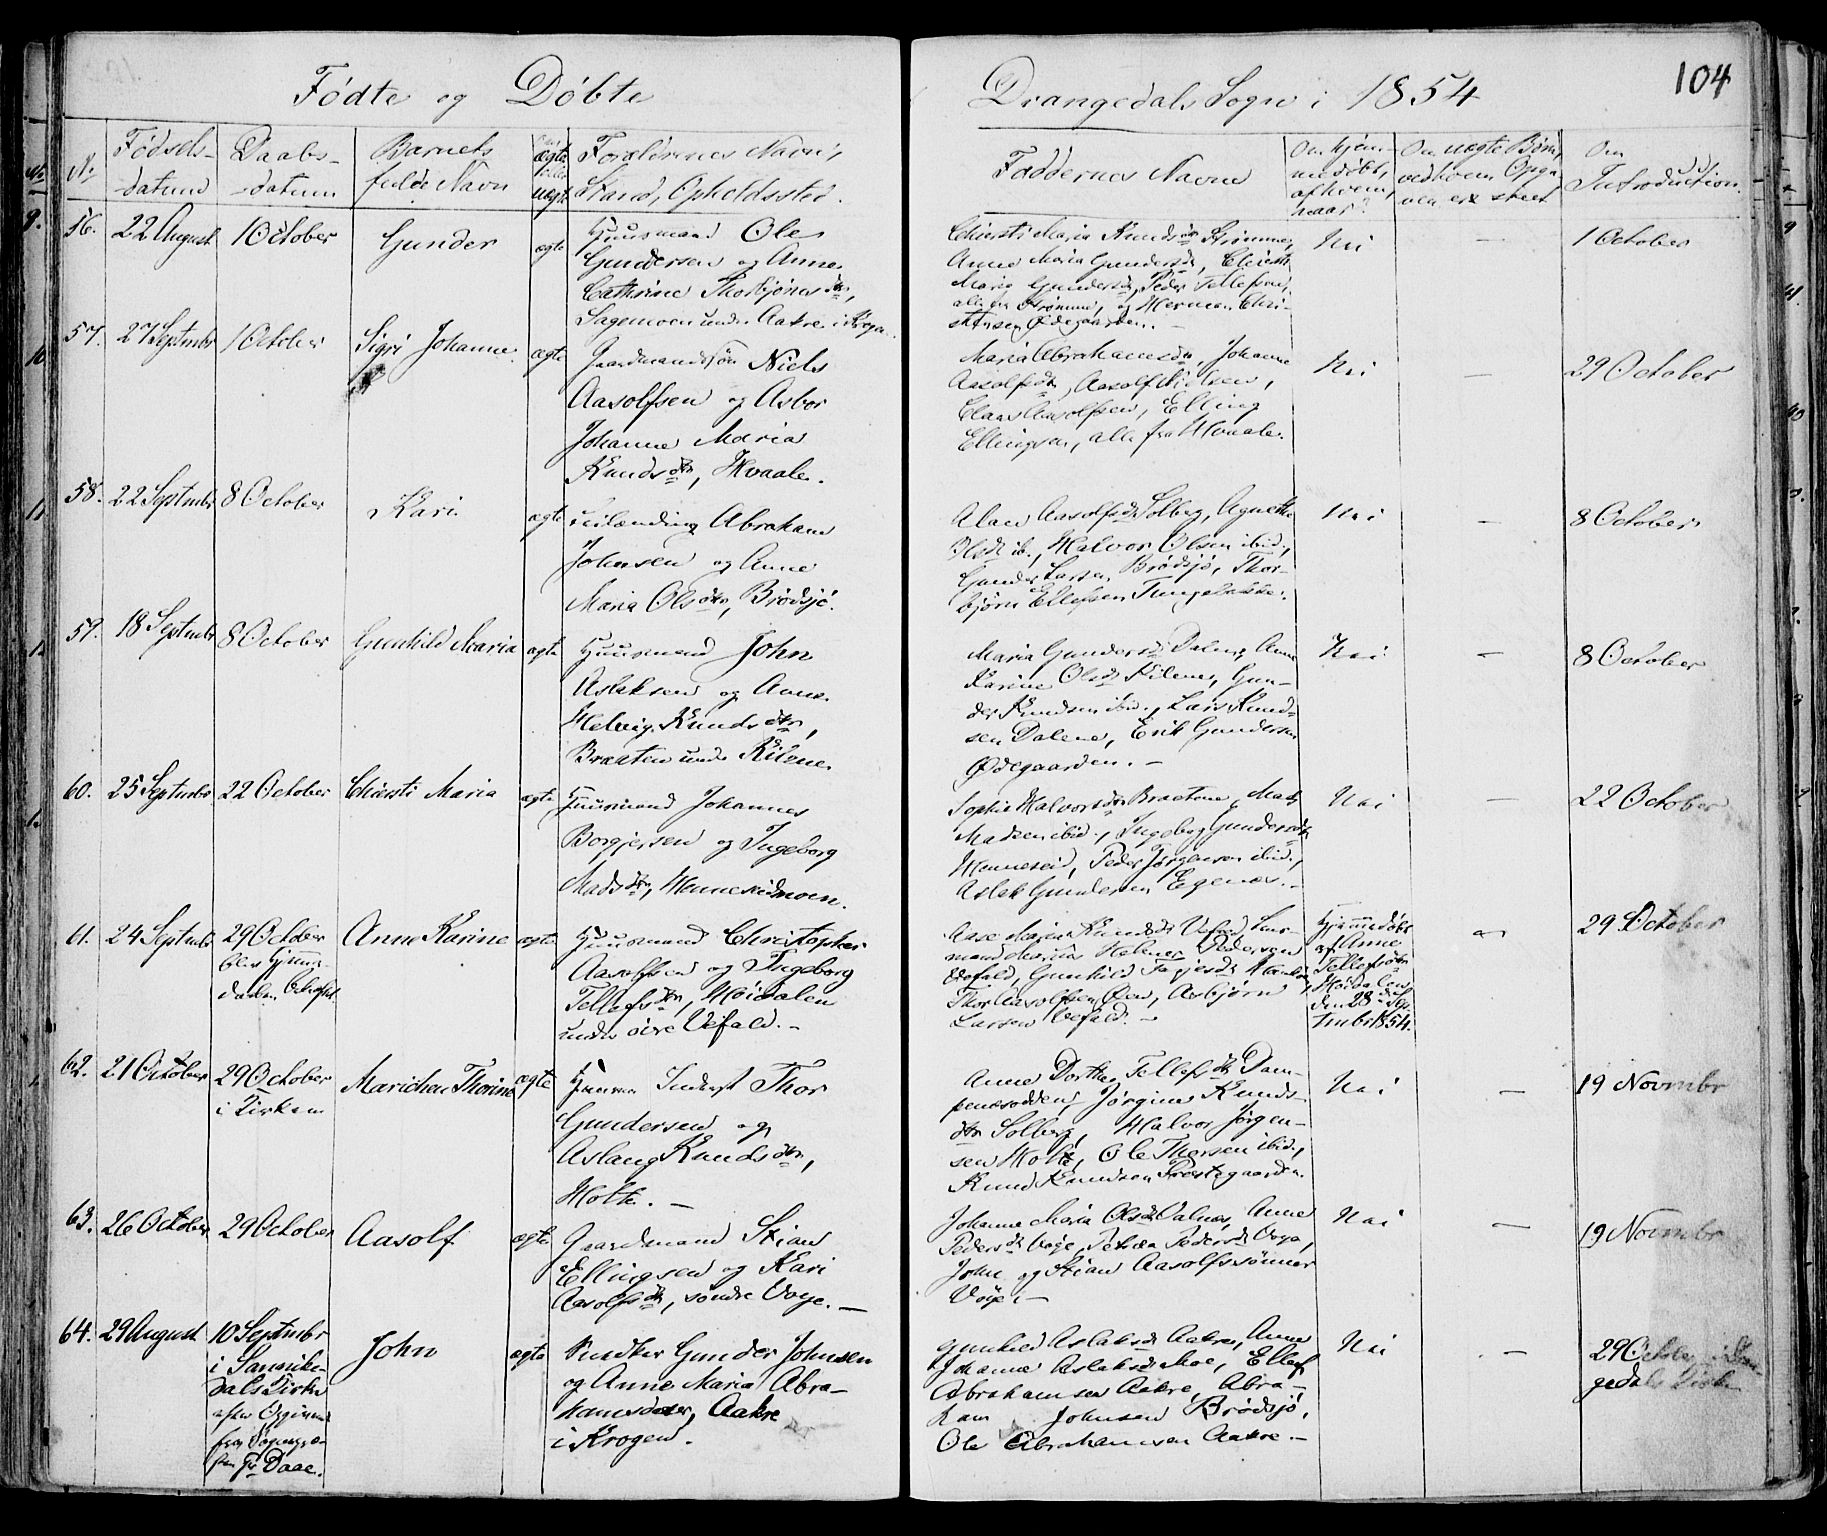 Fødte og Døbte
Drangedals Sogn i 1854
104
No
Fødsels-
datum
Daabs-
datum
Barnets
fulde Navn
ægte
eller
uægte
Forældrenes Navne,
Stand, Opholdssted.
Faddernes Navne
Om hjem-
medøbt,
af hvem,
naar?
Om uægte Børn,
ved hvem Opga-
ven er skeet
Om
Introduction.
56.
22 August
1 October
Gunder
ægte
Huusmand Ole
Gundersen og Anne
Cathrine Thorbjönsdtr,
Sagemoen under Aakre i Krogen
Chirsti Maria Knudsdtr Strømme,
Anne Maria Gundersdtr, Chirsti
Maria Gundersdtr, Peder Tellefsen,
alle fra Strømme, og Herman Chri-
stensen Ødegaarden. -
Nei
-
1 October
57.
27 Septmbr
1 October
Sigri Johanne
ægte
Gaardmandssøn Niels
Aasolfsen og Asbor
Johanne Maria
Knudsdtr, Hvaale.
Maria Abrahamsdtr, Johanne
Aasolfsdtr, Aasolf Nielsen,
Claus Aasolfsen, Elling
Ellingsen, alle fra Hvaale.
Nei
-
29 October
58.
22 Septmbr
8 October
Kari
ægte
Abraham
Johnsen og Anne
Maria Olsdtr, Brødsjö.
Aasolfsdtr Solberg, Agnethe
Olsdtr ib., Halvor Olsen ibid.,
Gunder Larsen Brødsjö, Thor-
björn Ellefsen Tungebakke.
Nei
-
8 October
59.
18 Septmbr
8 October
Gunhild Maria
ægte
Huusmand John
Aslaksen og Anne
Helvig Knudsdtr,
Braaten under Kilene
Maria Gundersdtr Dalene, Anne
Karine Olsdtr Kilene, Gun-
der Knudsen ibid., Lars Knud-
sen Dalene, Erik Gundersen
Ødegaarden. -
Nei
-
8 October
60.
25 Septmbr
22 October
Chirsti Maria
ægte
Huusmand Johannes
Borgjersen og Ingeborg
Madsdtr, Henneseidmoen.
Sophie Halvorsdtr Braatene, Mads
Madsen ibid., Ingeborg Gundersdtr
Henneseid, Peder Jörgensen ibid.,
Aslak Gundersen Egenæs. -
Nei
-
22 October
61.
24 Septmbr
29 October
blev Hjemme-
daaben bekræftet
Anne Karine
ægte
Huusmand Christopher
Aasolfsen og Ingeborg
Tellefsdtr, Höidalen
under övre Vefald. -
Aase Maria Knudsdtr Vefald,
Helene Pedersen
Vefald, Gunhild
Thor Aasolfsen Öen, Asbjörn
Larsen Vefald. -
Hjemmedøbt
af Anne
Tellefsdtr
Höidalen,
den 28de Sep-
tmbr 1854.
-
29 October
62.
21 October
29 October
i Kirken
Marichen Thorine
ægte
Thor
Gundersen og
Aslaug Knudsdtr,
Holte. -
Anne Dorthea Tellefsdtr Dam-
penæsodden, Jörgine Knuds-
dtr Solberg, Halvor Jörgen-
sen Holte, Ole Thorsen ibid.,
Knud Knudsen Præstegaarden.
Nei
-
19 Novmbr
63.
26 October
29 October
Aasolf
ægte
Gaardmand Stian
Ellingsen og Kari
Aasolfsdtr, söndre Voje. -
Johanne Maria Olsdtr Valnæs, Anne
Pedersdtr Voje, Petrea Pedersdtr Voje,
John og Stian Aasolfssönner
Voje. -
Nei
-
19 Novmbr
64.
29 August
10 Septmbr
i Sannike-
dals Kirke
efter Opgivende
fra Sognepræ-
sten Hr Daae.
John
ægte
Snedker Gunder Johnsen
og Anne Maria Abra-
hamsdatter, Aakre
i Krogen.
Gunhild Aslaksdtr Aakre, Anne
Johanne Aslaksdtr Moe, Ellef
Abrahamsen Aakre, Abra-
ham Johnsen Brødsjö,
Ole Abrahamsen Aakre. -
Nei
-
29 October i Dran-
gedals Kirke